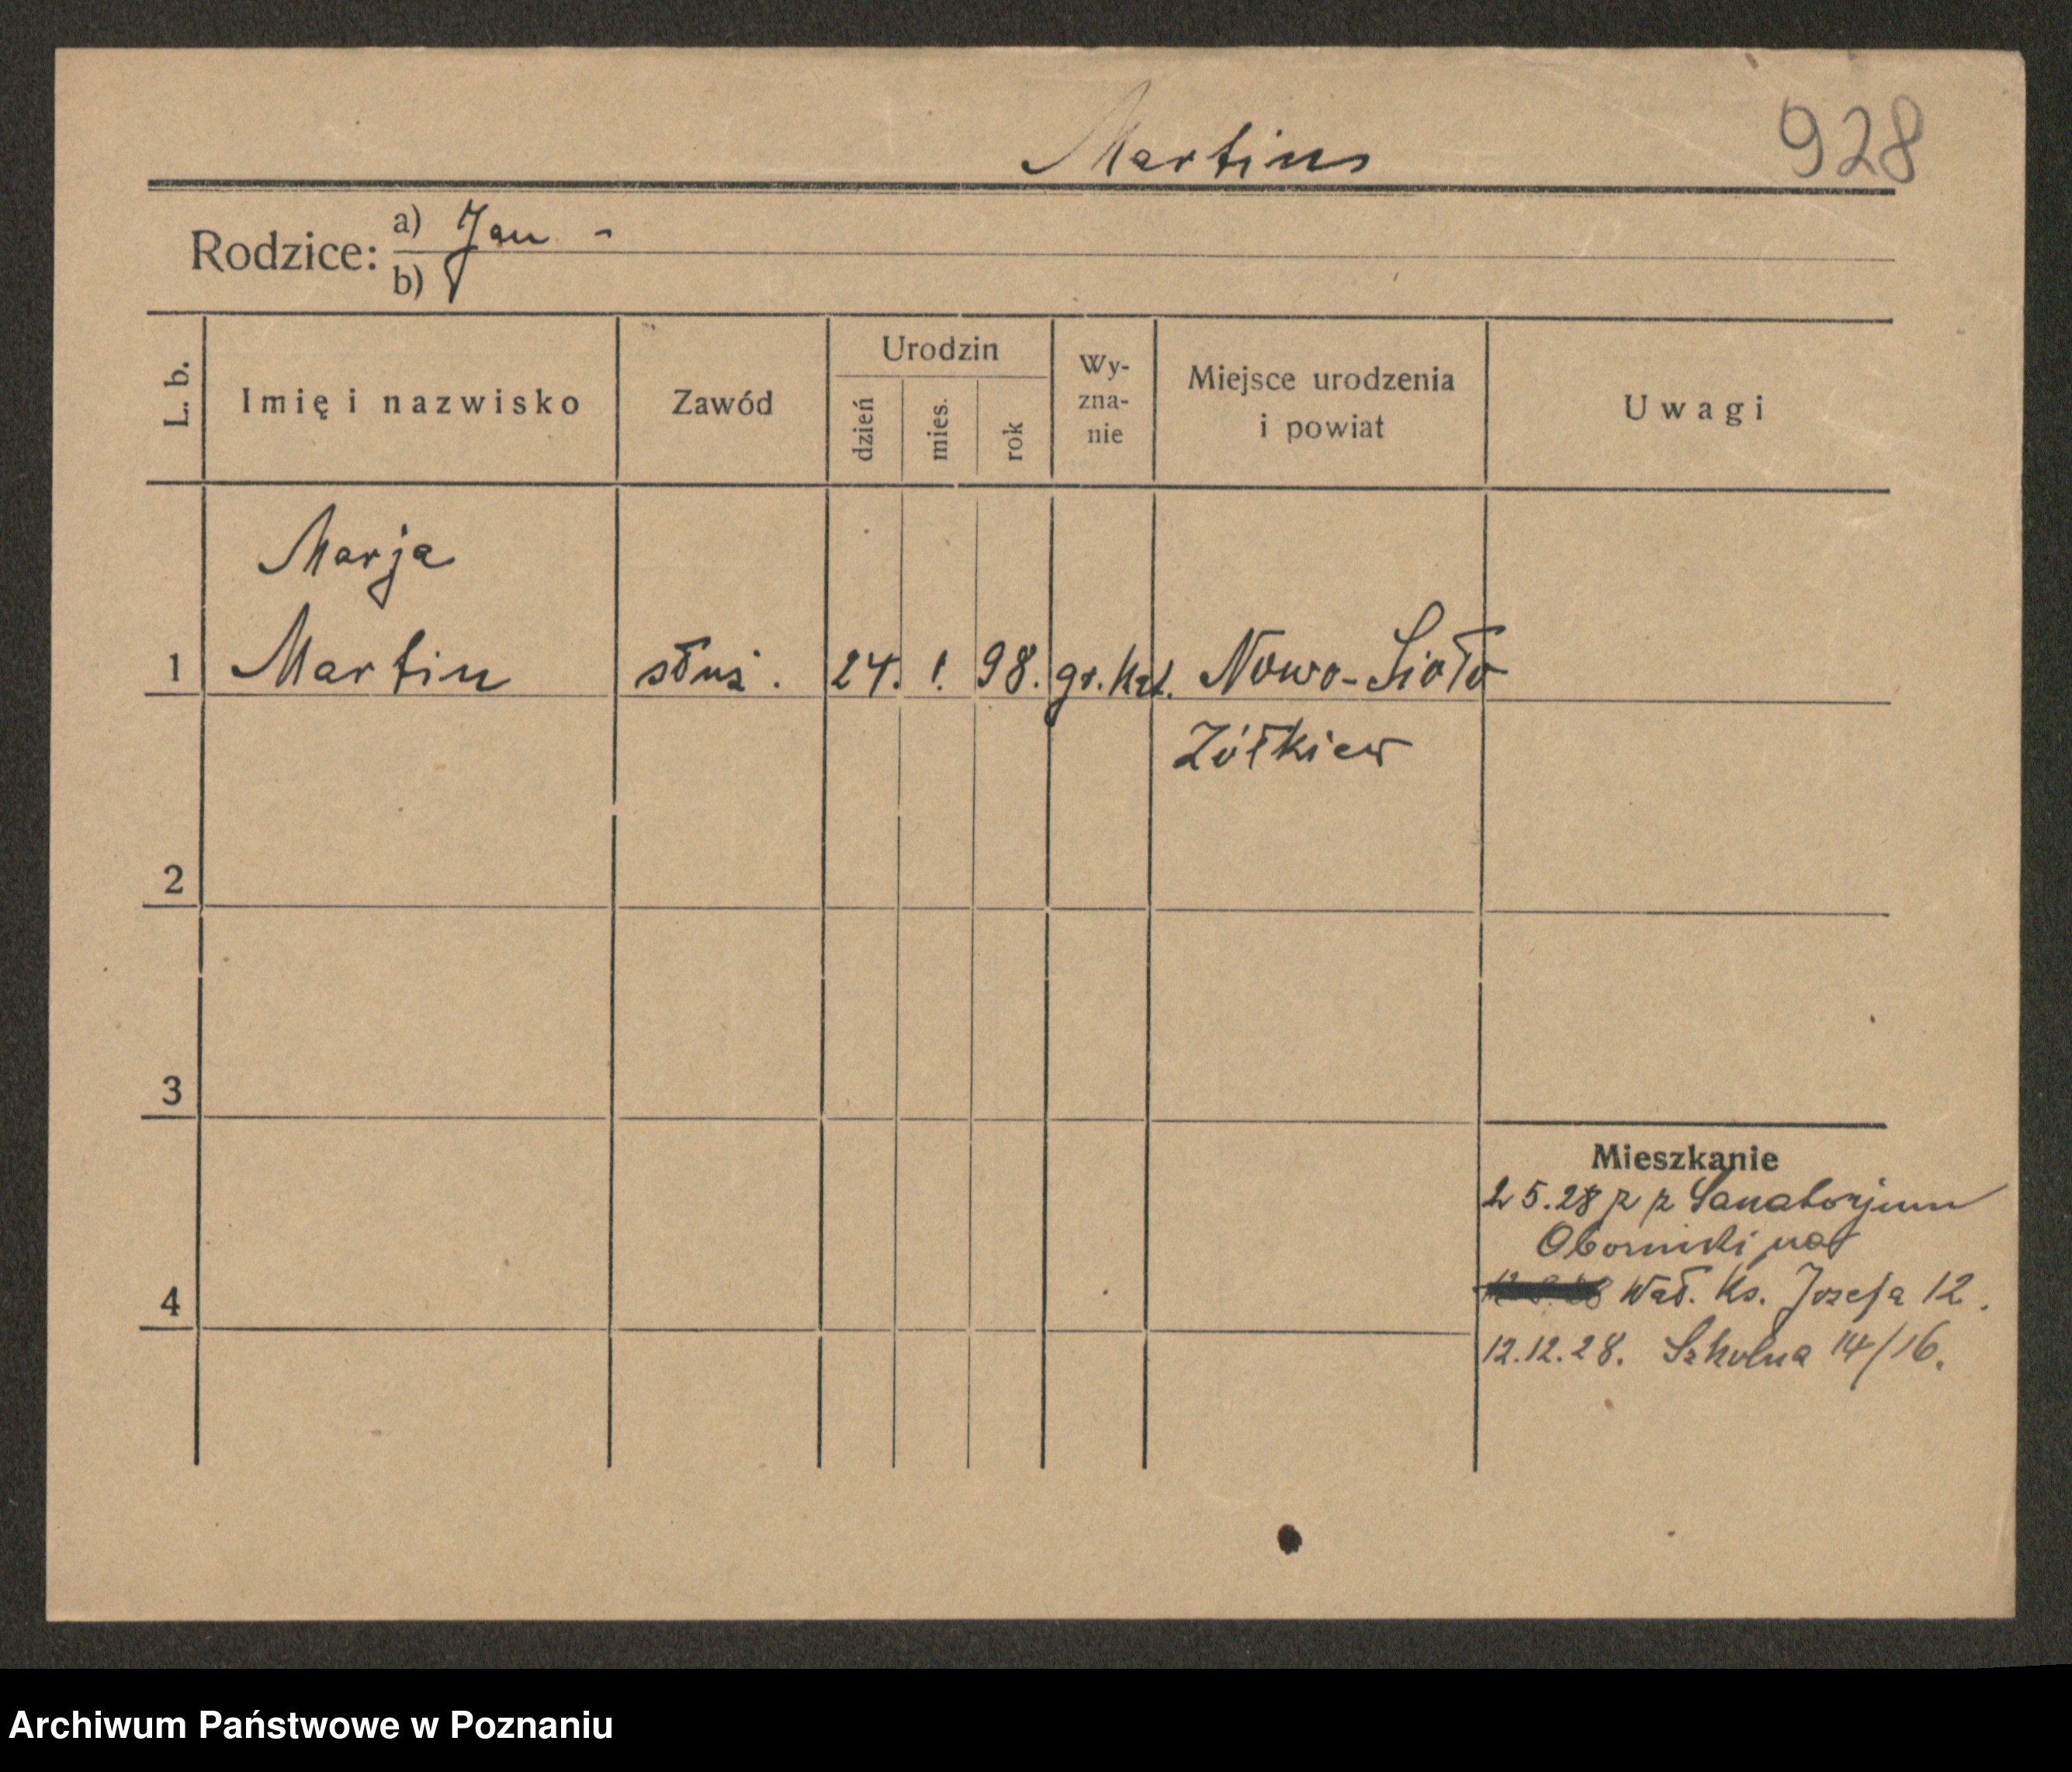 928
Martins
Rodzice:
a) Jan -
b)
L. b.
Imię i nazwisko
Zawód
Urodzin
dzień
mies.
rok
Wy-
zna-
nie
Miejsce urodzenia
i powiat
Uwagi
Marja
1 Martin służ. 24. 1. 98. gr. kat. Nowo-Sioło
Żółkiew
2
3
4
Mieszkanie
2 5.28 p p Sanatorjum
Oborniki
Wał. Ks. Józefa 12.
12.12.28. Szkolna 14/16.
Archiwum Państwowe w Poznaniu